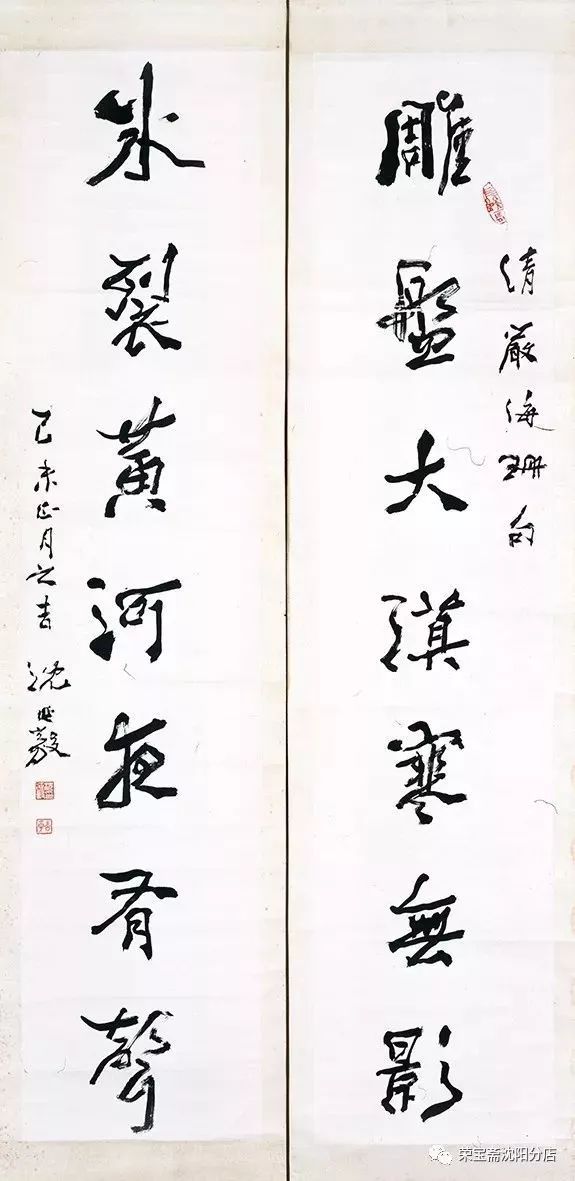 雕盤大漠寒無影
清嚴海珊句
冰裂黃河夜有聲
己未正月之吉 沈延毅
荣宝斋沈阳分店